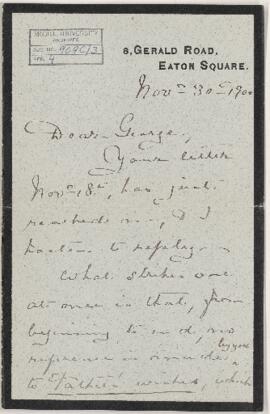 McGILL UNIVERSITY
ARCHIVES
ACC. NO. 909C/3
REF. 4
8, GERALD ROAD,
EATON SQUARE.
Novr 30th 190
Dear George,
Your letter
Novr 18th, has just
reached me, & I
hasten to reply
What strikes one
at once is that, from
beginning to end, no
by you
reference is made
to Father's wishes, which